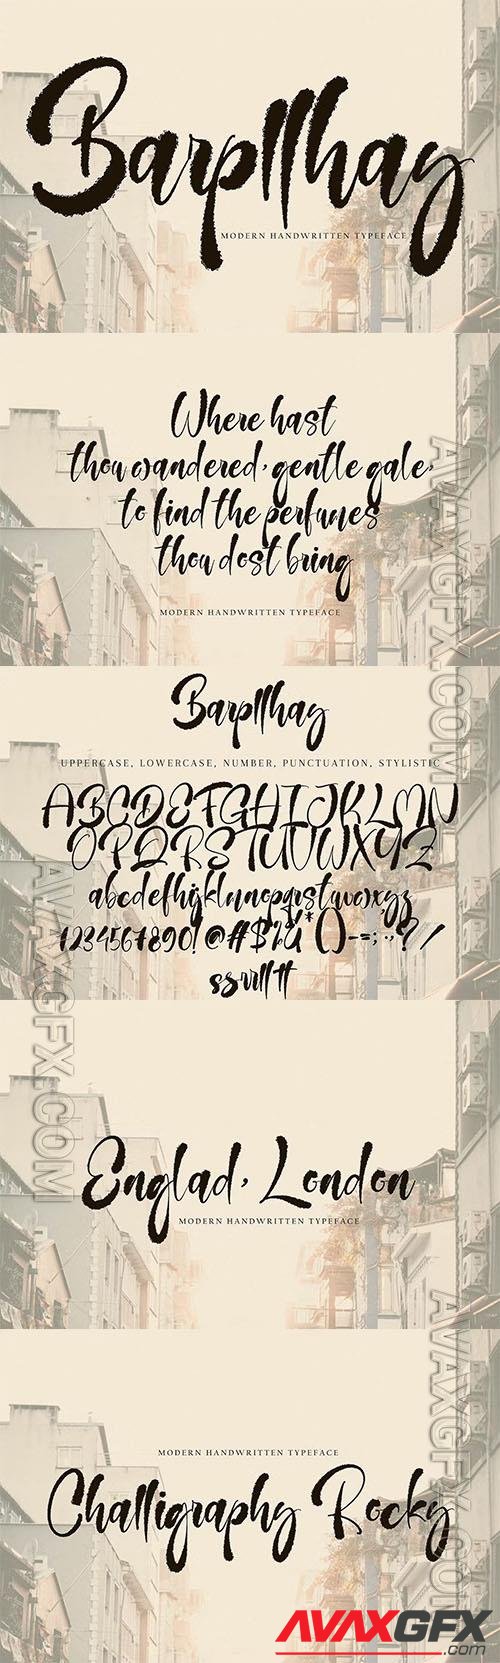 Barpllhay
MODERN HANDWRITTEN TYPEFACE
Where hast
thou wandered, gentle gale,
to find the perfumes
thou dost bring
MODERN HANDWRITTEN TYPEFACE
Barpllhay
UPPERCASE, LOWERCASE, NUMBER, PUNCTUATION, STYLISTIC
ABCDEFGHIJKLMN
OPQRSTUVWXYZ
abcdefhijklmnopqrstuvwxyz
1234567890!@#$%&*()-=;:.,?/
ss rr ll tt
Englad, London
MODERN HANDWRITTEN TYPEFACE
MODERN HANDWRITTEN TYPEFACE
Challigraphy Rocky
AVAXGFX.COM
AVAXGFX.COM
AVAXGFX.COM
AVAXGFX
.com